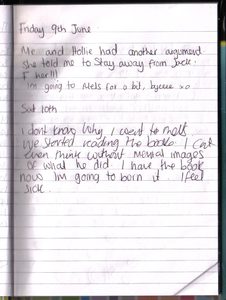 Friday 9th June
Me and Hollie had another argument
She told me to stay away from Jack.
F her!!!
Im going to Mels for a bit, byeee xo
Sat 10th
I dont know why I went to mels
We started reading the books I cant
even think without mental images
of what he did I have the book
now Im going to born it I feel
sick.